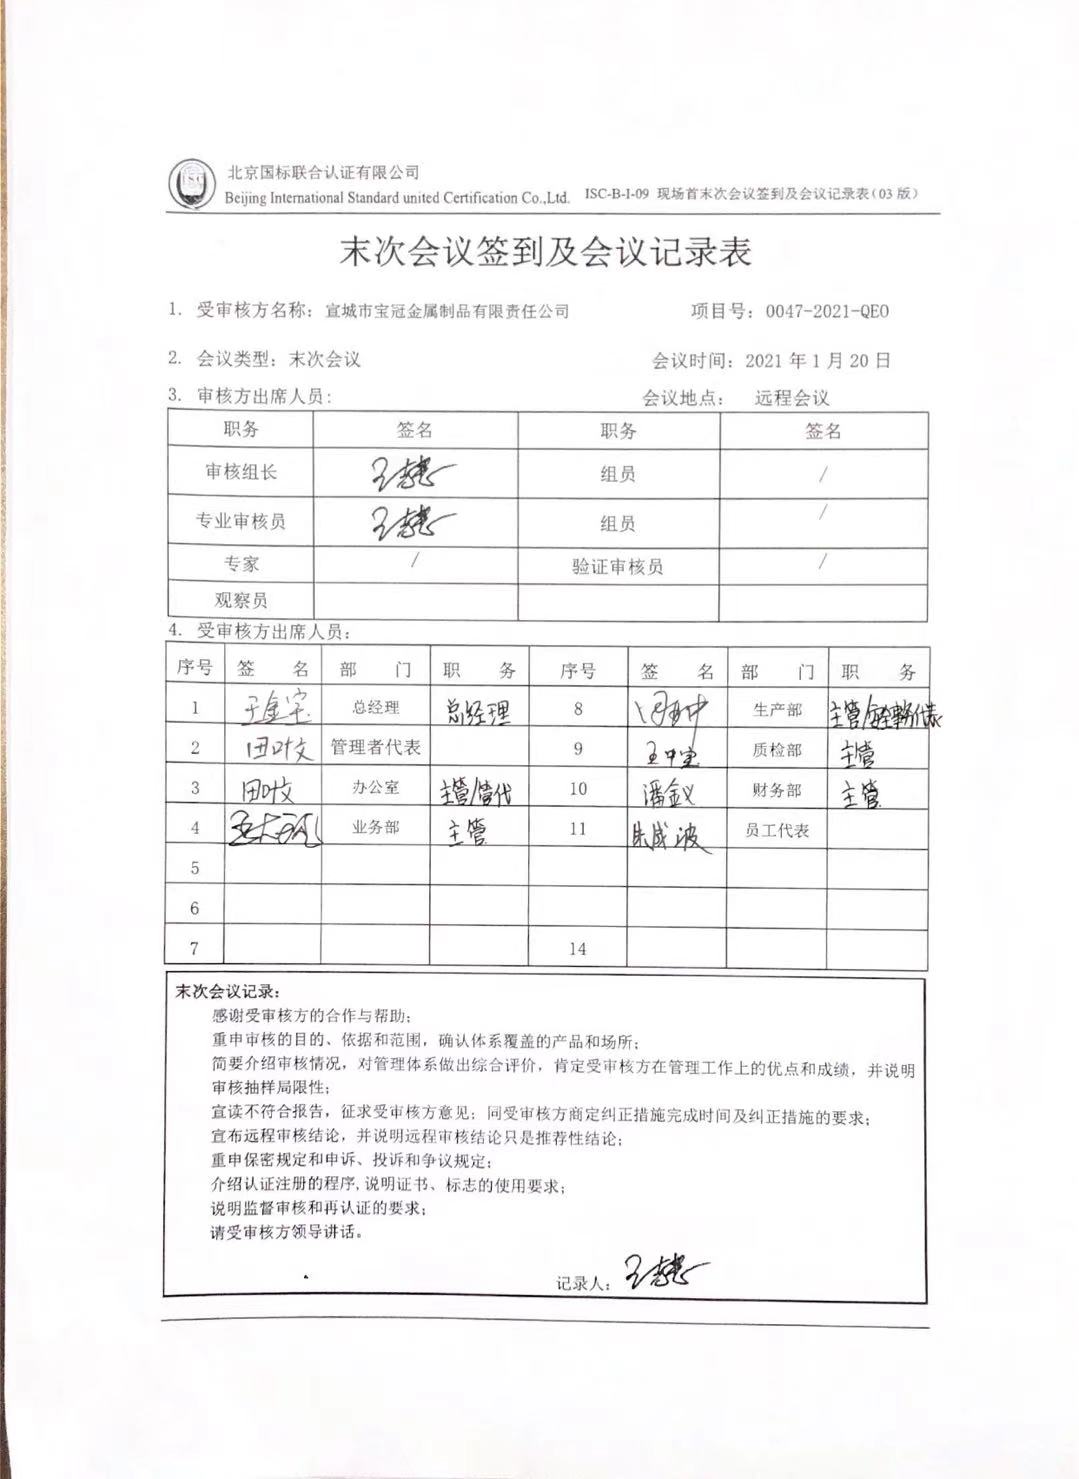 北京国标联合认证有限公司
Beijing International Standard united Certification Co.,Ltd. ISC-B-I-09 现场首末次会议签到及会议记录表(03 版)
ISC
末次会议签到及会议记录表
1. 受审核方名称: 宣城市宝冠金属制品有限责任公司 项目号: 0047-2021-QEO
2. 会议类型: 末次会议 会议时间: 2021 年 1 月 20 日
3. 审核方出席人员: 会议地点: 远程会议
职务 签名 职务 签名
审核组长 组员 /
专业审核员 组员 /
专家 / 验证审核员 /
观察员
4. 受审核方出席人员:
序号 签 名 部 门 职 务 序号 签 名 部 门 职 务
1 于金宝 总经理 总经理 8 生产部 主管/安全事务代表
2 田叶文 管理者代表 9 王中宝 质检部 主管
3 田叶文 办公室 主管/管代 10 潘金义 财务部 主管
4 业务部 主管 11 朱成波 员工代表
5
6
7 14
末次会议记录:
感谢受审核方的合作与帮助;
重申审核的目的、依据和范围, 确认体系覆盖的产品和场所;
简要介绍审核情况, 对管理体系做出综合评价, 肯定受审核方在管理工作上的优点和成绩, 并说明
审核抽样局限性;
宣读不符合报告, 征求受审核方意见; 同受审核方商定纠正措施完成时间及纠正措施的要求;
宣布远程审核结论, 并说明远程审核结论只是推荐性结论;
重申保密规定和申诉、投诉和争议规定;
介绍认证注册的程序, 说明证书、标志的使用要求;
说明监督审核和再认证的要求;
请受审核方领导讲话。
记录人: